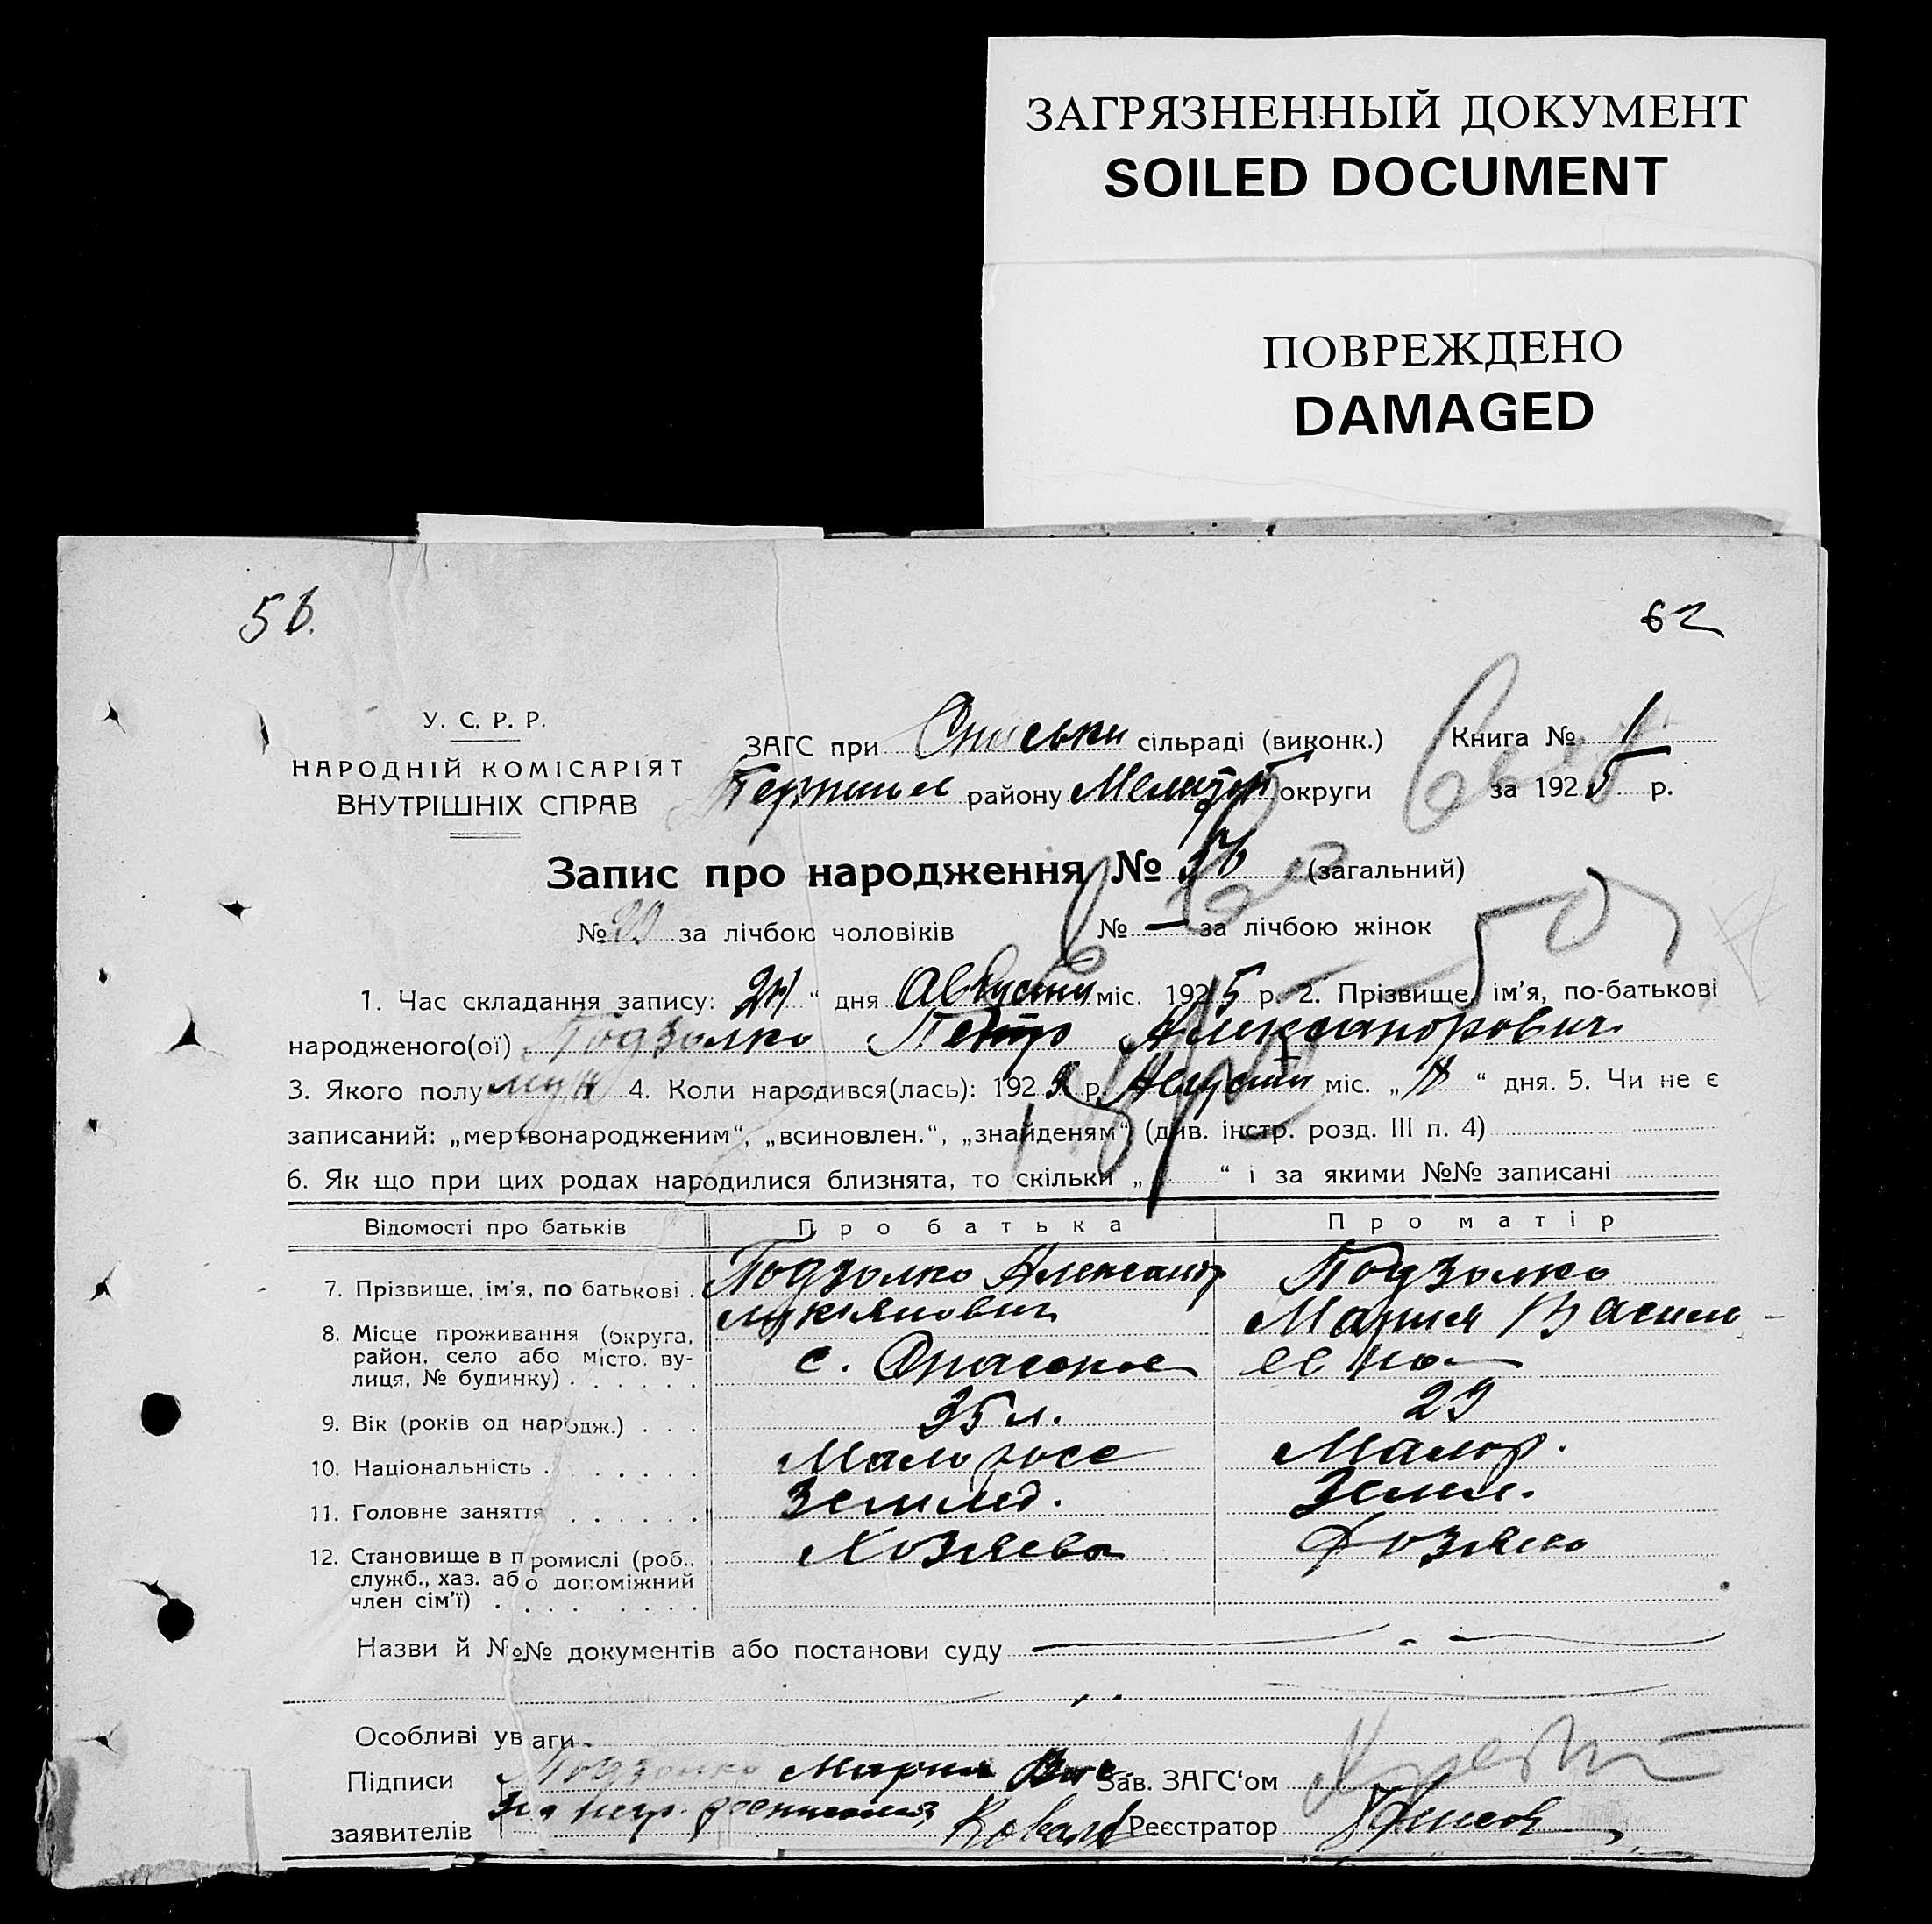 ЗАГРЯЗНЕННЫЙ ДОКУМЕНТ
SOILED DOCUMENT
ПОВРЕЖДЕНО
DAMAGED
56.
62
У. С. Р. Р.
НАРОДНІЙ КОМІСАРІЯТ
ВНУТРІШНІХ СПРАВ
ЗАГС при сільраді (виконк.) Книга № 1
району Мелитоп округи за 1925 р.
Запис про народження № 56 (загальний)
№ 29 за лічбою чоловіків № — за лічбою жінок
1. Час складання запису: 24 “ дня Августа міс. 1925 р. 2. Прізвище, ім’я, по-батькові
народженого(ої) Подзолко Петр Александрович
3. Якого полу муж 4. Коли народився(лась): 192 р. Августа міс. „ “ дня. 5. Чи не є
записаний: „мертвонародженим“, „всиновлен.“, „знайденям“ (див. інстр. розд. III п. 4)
6. Як що при цих родах народилися близнята, то скільки „ “ і за якими №№ записані
Відомості про батьків Про батька Про матір
7. Прізвище, ім’я, по батькові . Подзолко Александр Лукьянович Подзолко Мария Василь-
евна
8. Місце проживання (округа, район, село або місто, ву-
лиця, № будинку) . . . . . . с. Спасское
9. Вік (років од народж.) . . . 35 л. 29
10. Національність . . . . . . Малоросс Малор.
11. Головне заняття . . . . . . Землед. Земл.
12. Становище в промислі (роб.,
служб., хаз. або допоміжний
член сім’ї) . . . . . . . . Хозяева Хозяева
Назви й №№ документів або постанови суду
Особливі уваги
Підписи Подзолко Мария Вас. Зав. ЗАГС‘ом
заявителів Реєстратор